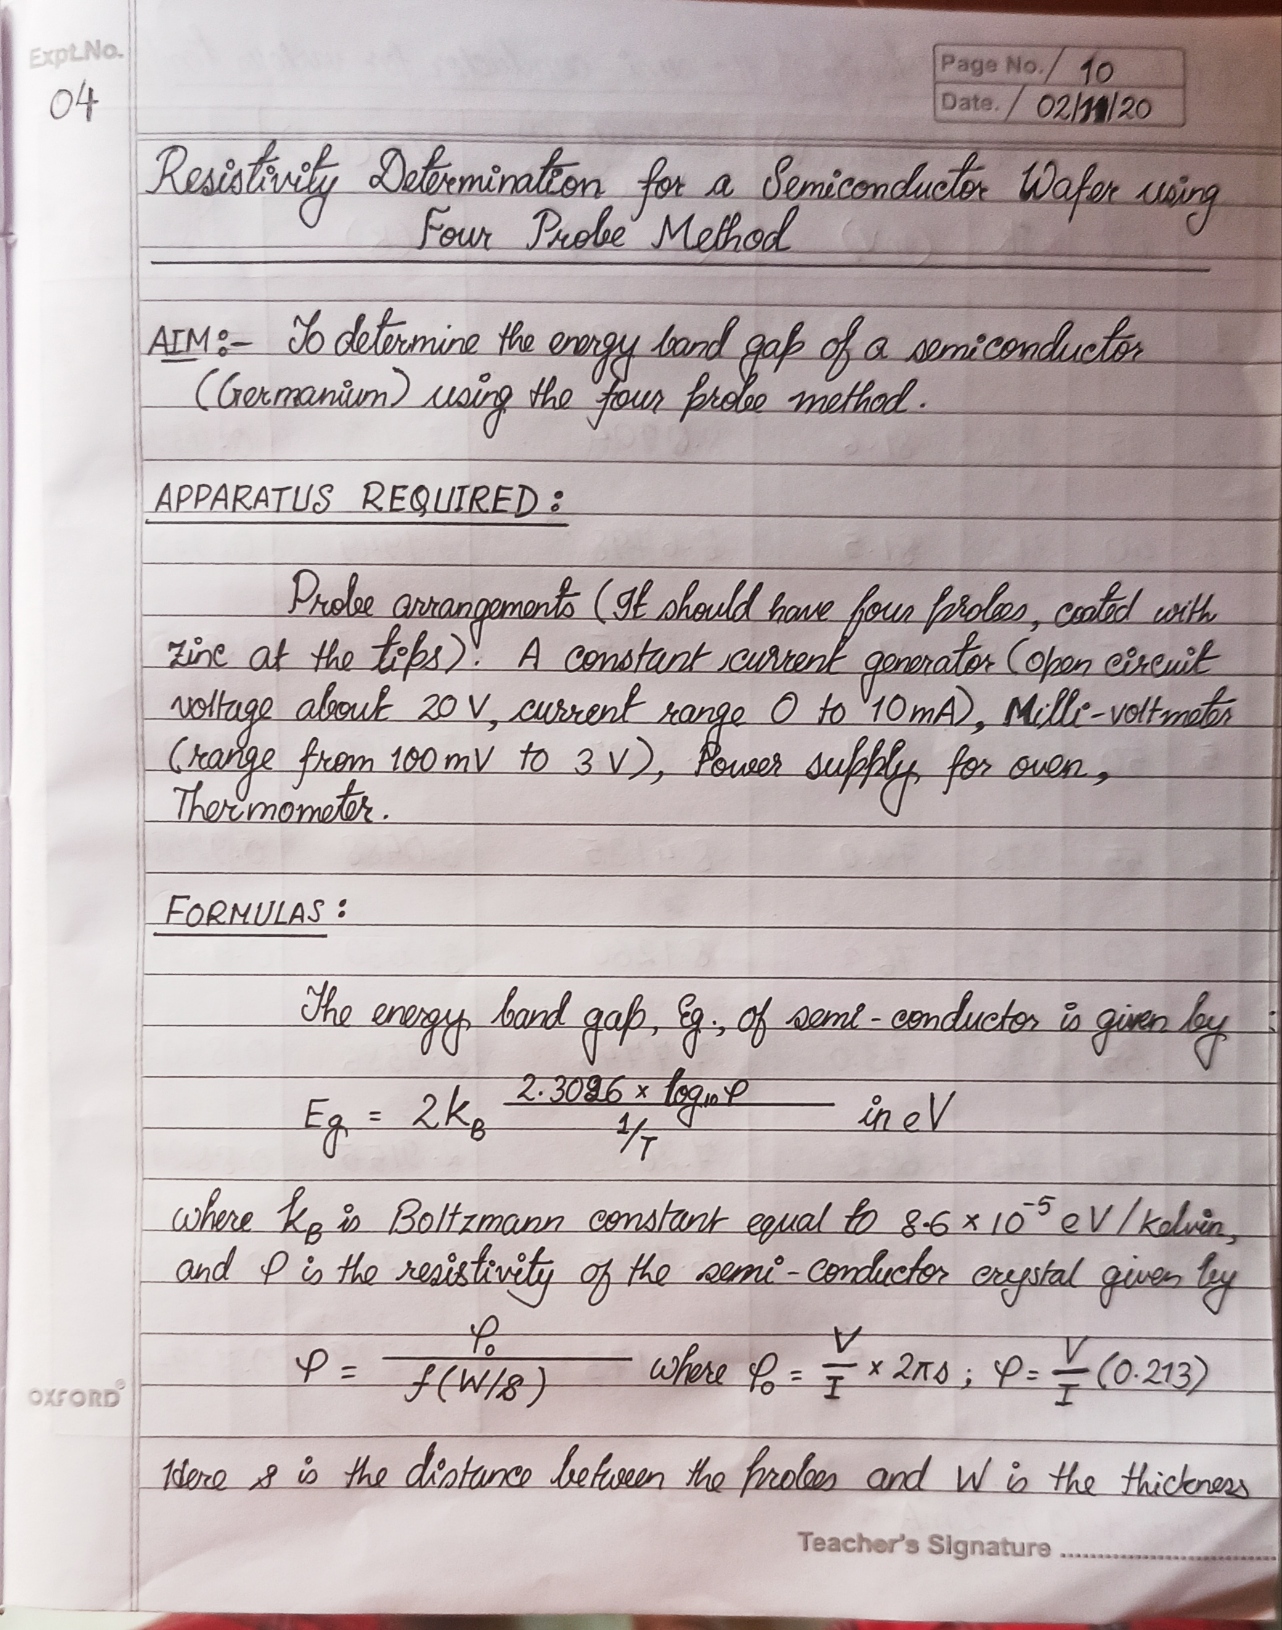 Expt.No.
04
Page No. / 10
Date. / 02/11/20
Resistivity Determination for a Semiconductor Wafer using
Four Probe Method
AIM:- To determine the energy band gap of a semiconductor
(Germanium) using the four probe method.
APPARATUS REQUIRED:
Probe arrangements (It should have four probes, coated with
zinc at the tips). A constant current generator (open circuit
voltage about 20 V, current range 0 to 10 mA), Milli-voltmeter
(range from 100 mV to 3 V), Power supply for oven,
Thermometer.
FORMULAS:
The energy band gap, Eg., of semi-conductor is given by :
Eg = 2k_B (2.3026 × log₁₀ρ) / (1/T) in eV
where k_B is Boltzmann constant equal to 8.6 × 10⁻⁵ eV/kelvin,
and ρ is the resistivity of the semi-conductor crystal given by
ρ = ρ₀ / f(W/S) where ρ₀ = V/I × 2πs ; ρ = V/I (0.213)
OXFORD®
Here s is the distance between the probes and W is the thickness
Teacher's Signature ........................